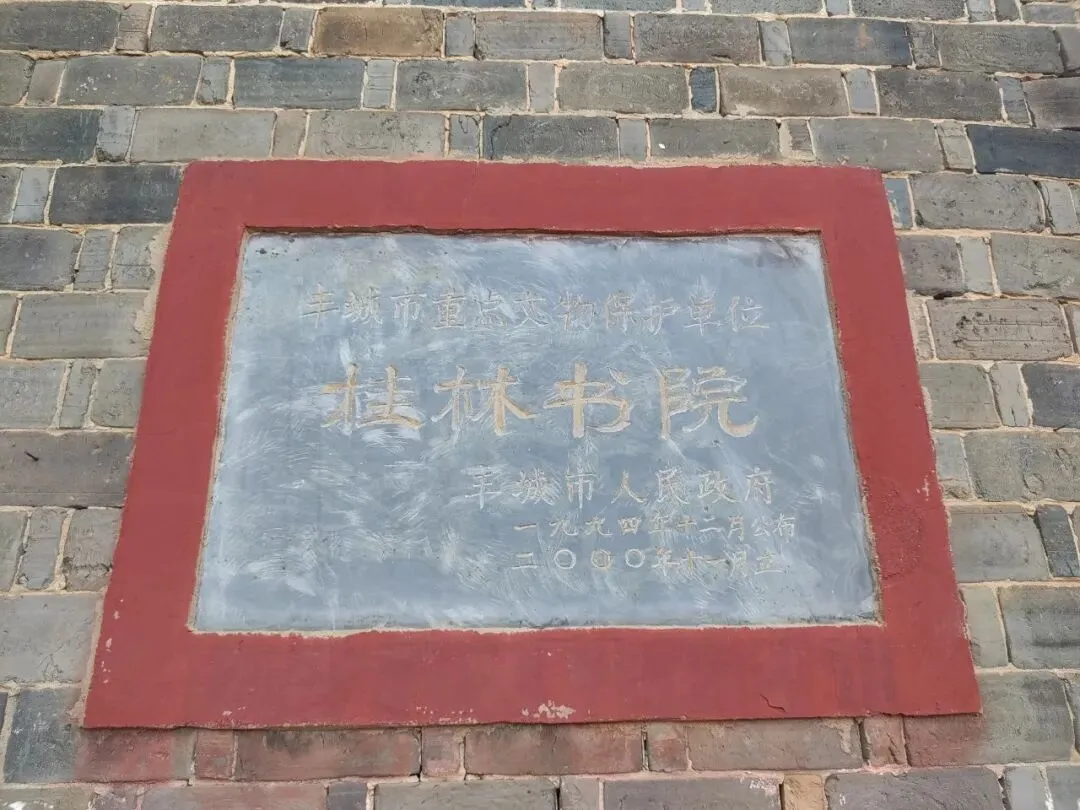 丰城市重点文物保护单位
桂林书院
丰城市人民政府
一九九四年十二月公布
二〇〇〇年十一月立